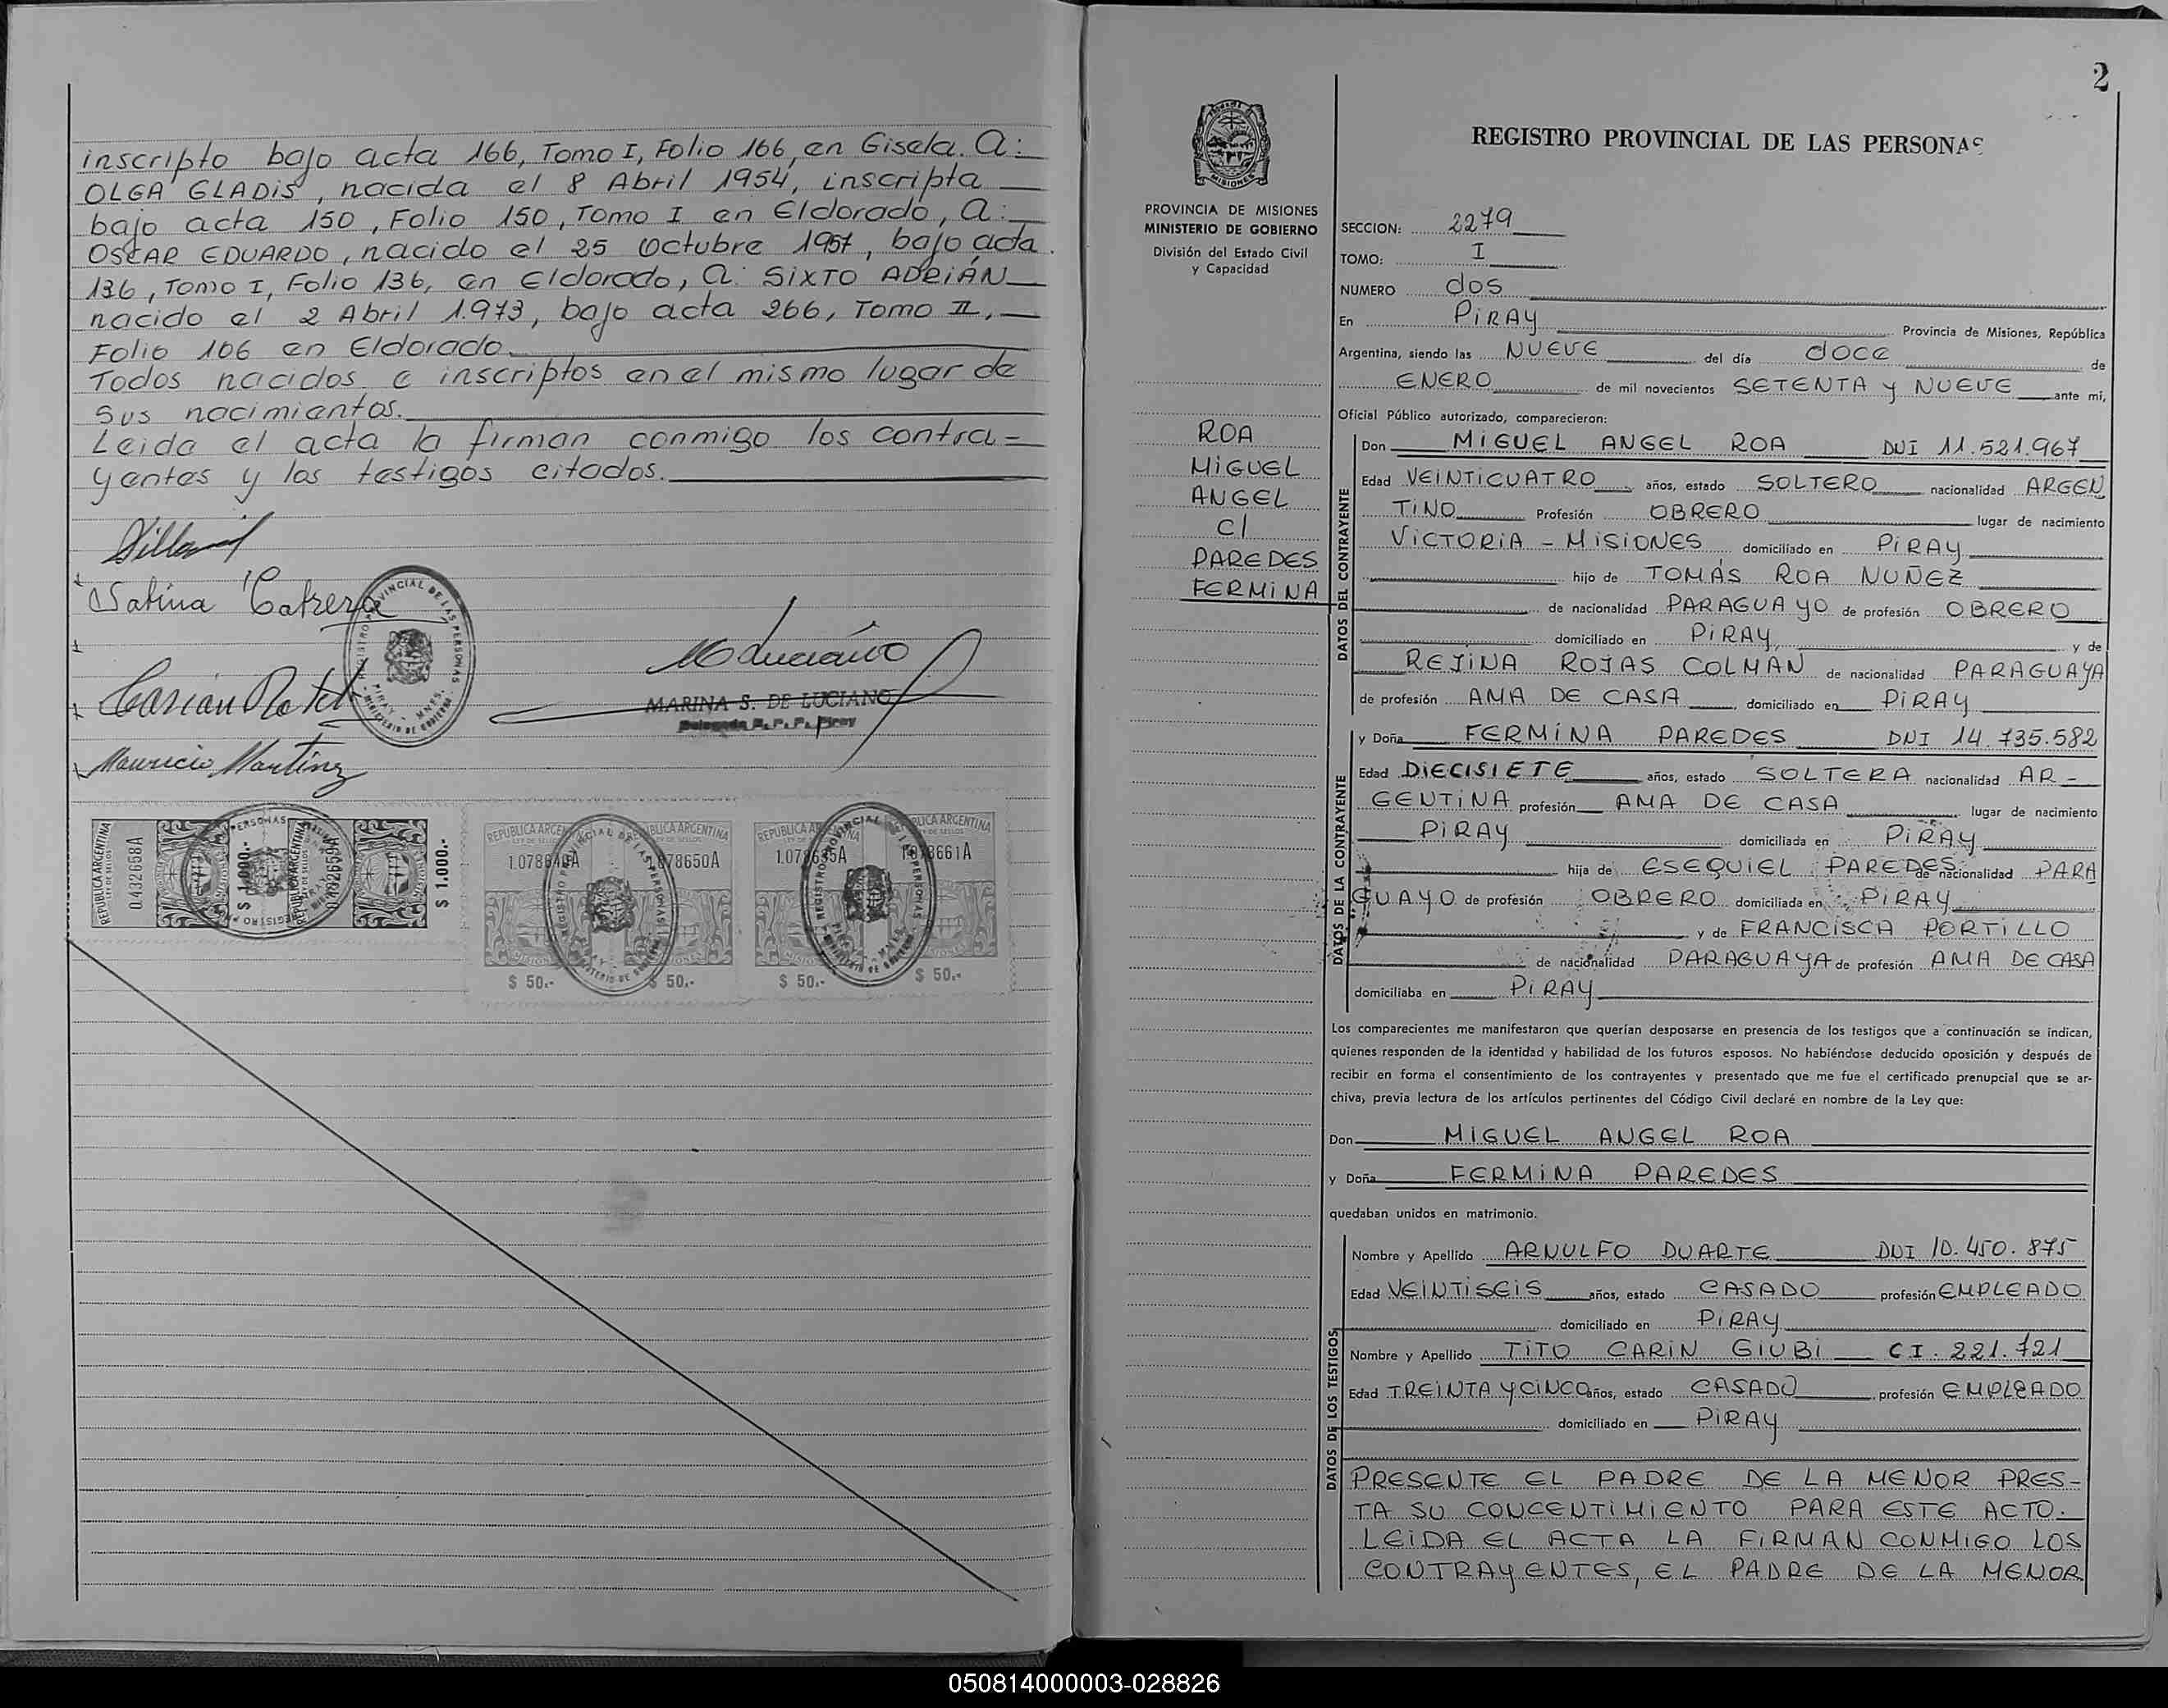 inscripto bajo acta 166, Tomo I, Folio 166, en Gisela. A:
OLGA GLADIS, nacida el 8 Abril 1954, inscripta
bajo acta 150, Folio 150, Tomo I en Eldorado, A:
OSCAR EDUARDO, nacido el 25 Octubre 1957, bajo acta
136, Tomo I, Folio 136, en Eldorado, A: SIXTO ADRIÁN
nacido el 2 Abril 1.973, bajo acta 266, Tomo II,
Folio 106 en Eldorado.
Todos nacidos e inscriptos en el mismo lugar de
sus nacimientos.
Leida el acta la firman conmigo los contra=
yentes y los testigos citados.
Sabina Cabrera
Mauricio Martínez
MARINA S. DE LUCIANO
Delegada R. P. P. Piray
REPUBLICA ARGENTINA
0.432658A
$ 1.000.-
REPUBLICA ARGENTINA
$ 1.000.-
REPUBLICA ARGENTINA
$ 50.-
$ 50.-
REPUBLICA ARGENTINA
$ 50.-
$ 50.-
2
MISIONES
PROVINCIA DE MISIONES
MINISTERIO DE GOBIERNO
División del Estado Civil
y Capacidad
ROA
MIGUEL
ANGEL
C/
PAREDES
FERMINA
REGISTRO PROVINCIAL DE LAS PERSONAS
SECCION: 2279
TOMO: I
NUMERO dos
En PIRAY Provincia de Misiones, República
Argentina, siendo las NUEVE del día doce de
ENERO de mil novecientos SETENTA y NUEVE ante mi,
Oficial Público autorizado, comparecieron:
DATOS DEL CONTRAYENTE
Don MIGUEL ANGEL ROA DNI 11.521.967
Edad VEINTICUATRO años, estado SOLTERO nacionalidad ARGEN
TINO Profesión OBRERO lugar de nacimiento
VICTORIA - MISIONES domiciliado en PIRAY
hijo de TOMÁS ROA NUÑEZ
de nacionalidad PARAGUAYO de profesión OBRERO
domiciliado en PIRAY, y de
REJINA ROJAS COLMAN de nacionalidad PARAGUAYA
de profesión AMA DE CASA, domiciliado en PIRAY
DATOS DE LA CONTRAYENTE
y Doña FERMINA PAREDES DNI 14.735.582
Edad DIECISIETE años, estado SOLTERA nacionalidad AR-
GENTINA profesión AMA DE CASA lugar de nacimiento
PIRAY domiciliada en PIRAY
hija de ESEQUIEL PAREDES de nacionalidad PARA
GUAYO de profesión OBRERO domiciliada en PIRAY
y de FRANCISCA PORTILLO
de nacionalidad PARAGUAYA de profesión AMA DE CASA
domiciliaba en PIRAY
Los comparecientes me manifestaron que querían desposarse en presencia de los testigos que a continuación se indican,
quienes responden de la identidad y habilidad de los futuros esposos. No habiéndose deducido oposición y después de
recibir en forma el consentimiento de los contrayentes y presentado que me fue el certificado prenupcial que se ar-
chiva, previa lectura de los artículos pertinentes del Código Civil declaré en nombre de la Ley que:
Don MIGUEL ANGEL ROA
y Doña FERMINA PAREDES
quedaban unidos en matrimonio.
DATOS DE LOS TESTIGOS
Nombre y Apellido ARNULFO DUARTE DNI 10.450.875
Edad VEINTISEIS años, estado CASADO profesión EMPLEADO
domiciliado en PIRAY
Nombre y Apellido TITO CARIN GIUBI CI. 221.721
Edad TREINTA Y CINCO años, estado CASADO, profesión EMPLEADO
domiciliado en PIRAY
PRESENTE EL PADRE DE LA MENOR PRES-
TA SU CONCENTIMIENTO PARA ESTE ACTO.
LEIDA EL ACTA LA FIRMAN CONMIGO LOS
CONTRAYENTES, EL PADRE DE LA MENOR
050814000003-028826